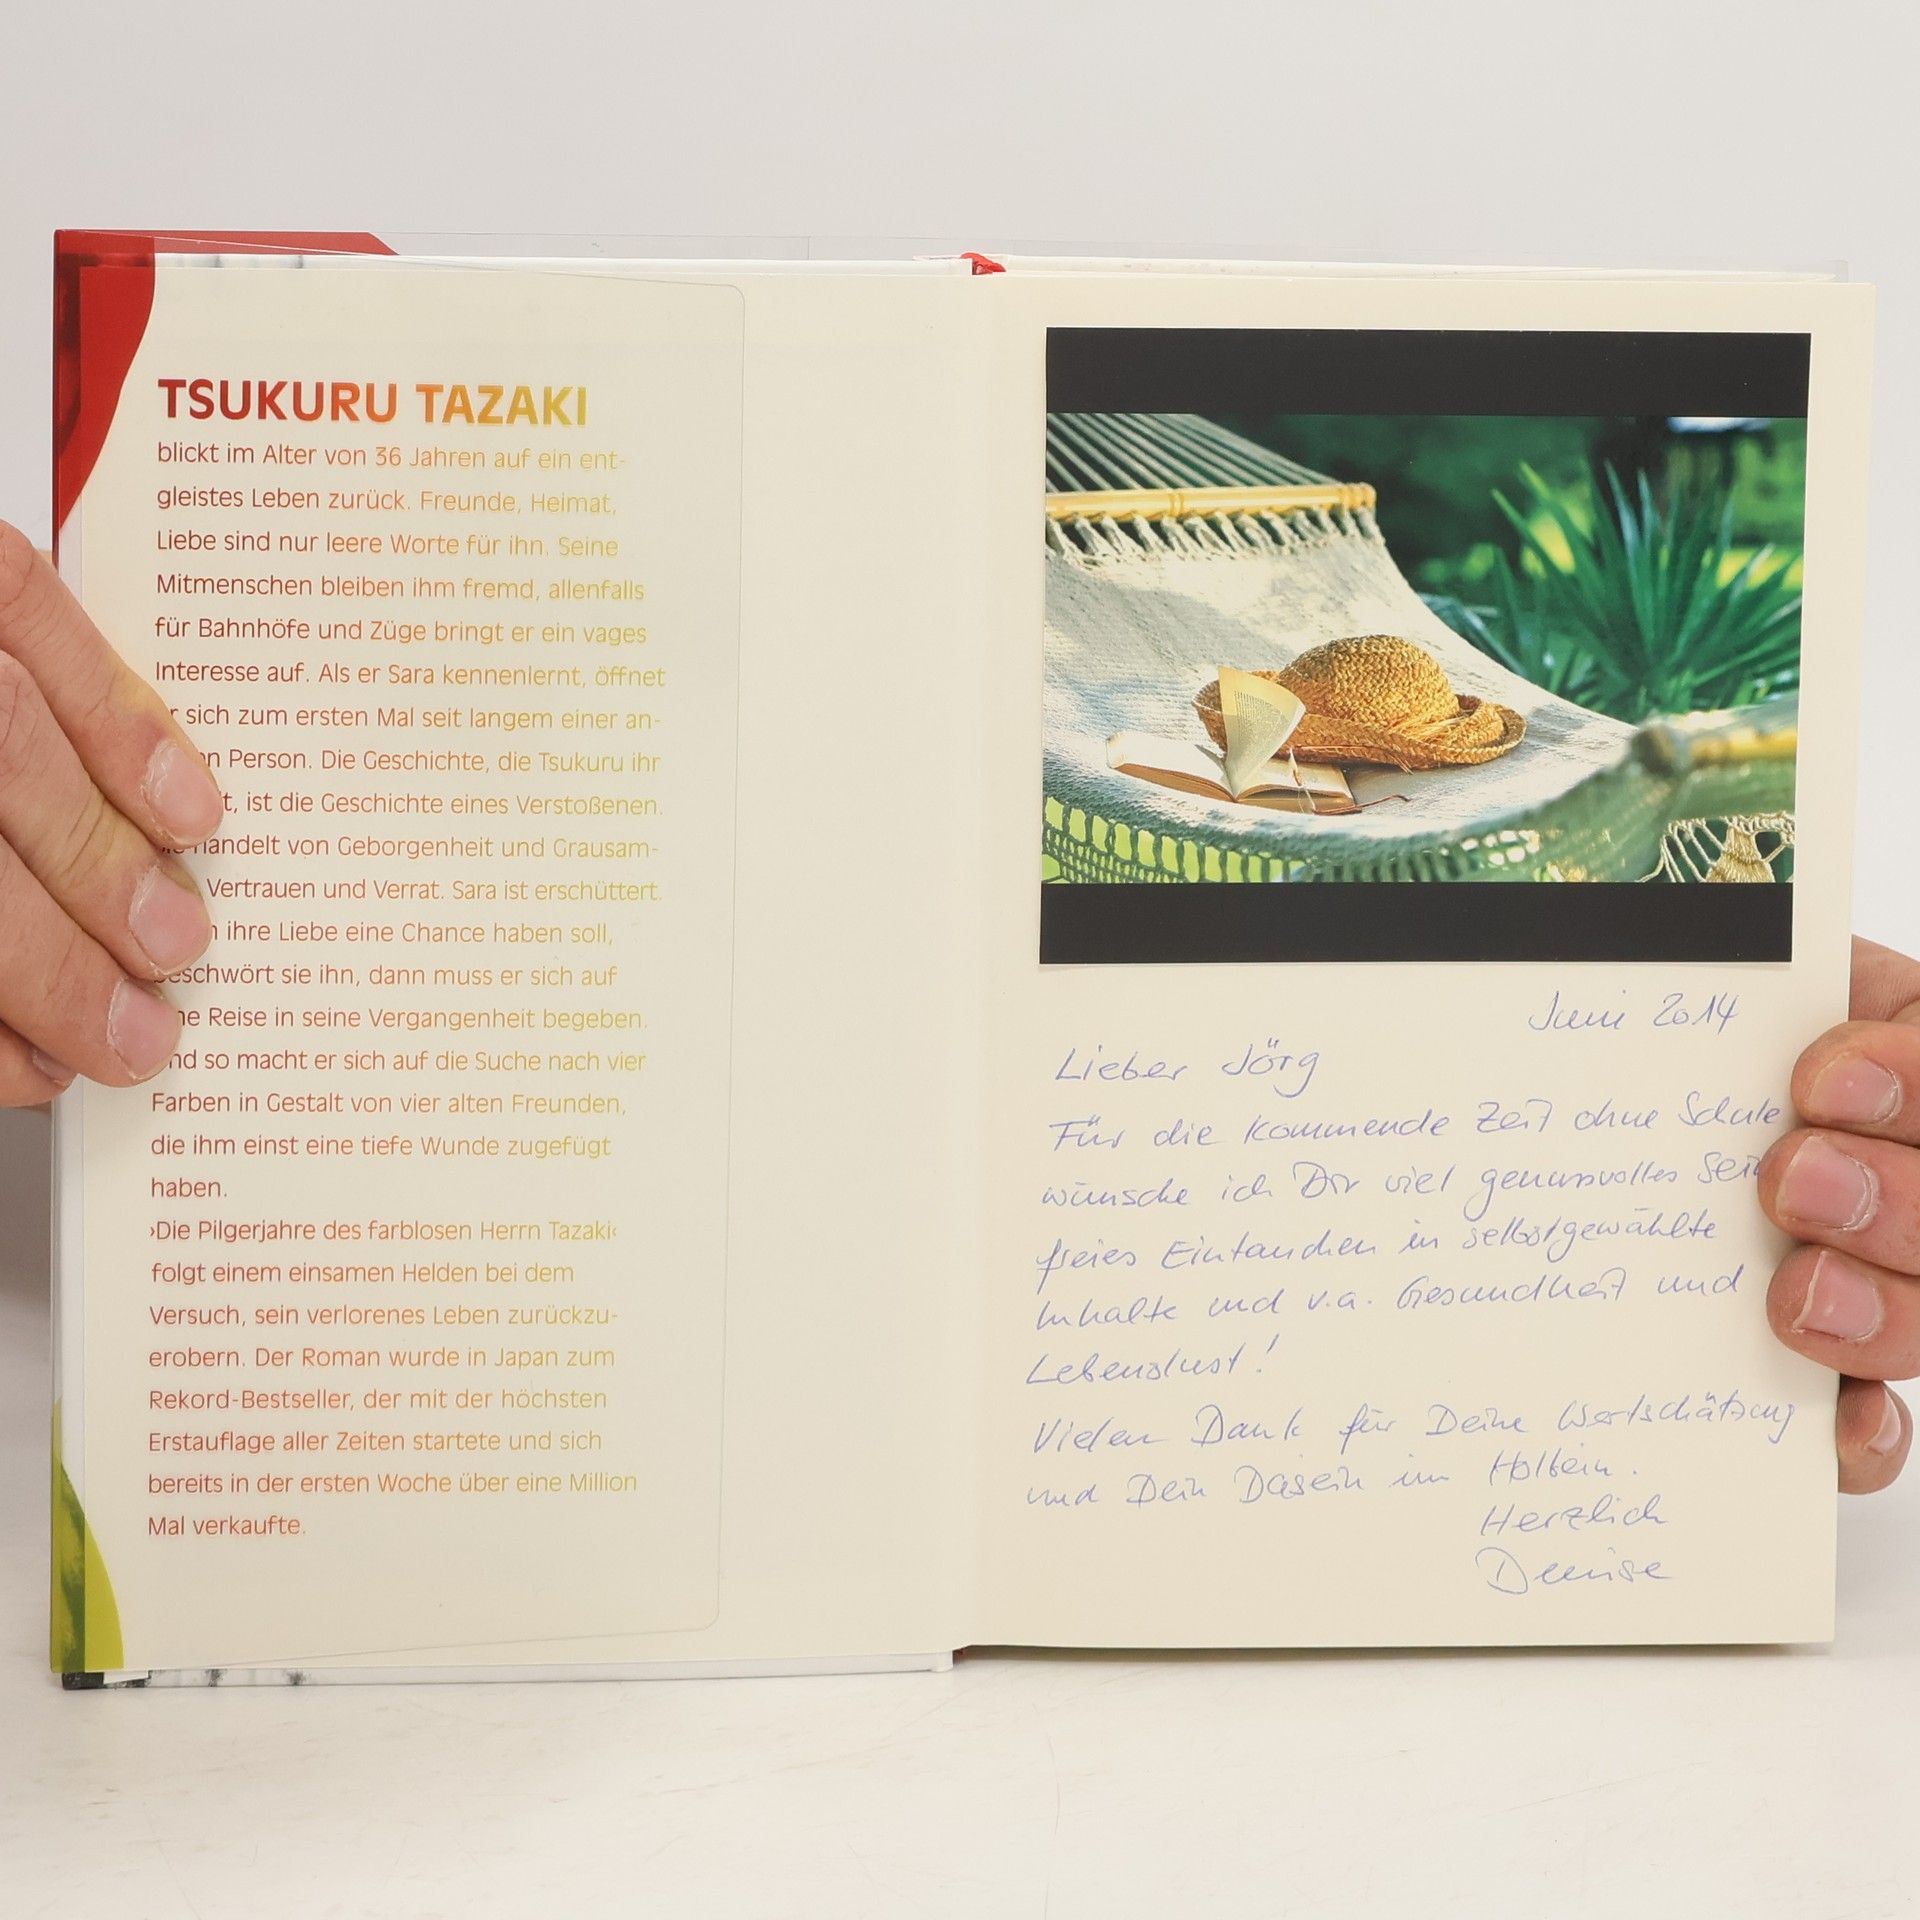 TSUKURU TAZAKI
blickt im Alter von 36 Jahren auf ein ent-
gleistes Leben zurück. Freunde, Heimat,
Liebe sind nur leere Worte für ihn. Seine
Mitmenschen bleiben ihm fremd, allenfalls
für Bahnhöfe und Züge bringt er ein vages
Interesse auf. Als er Sara kennenlernt, öffnet
r sich zum ersten Mal seit langem einer an-
n Person. Die Geschichte, die Tsukuru ihr
t, ist die Geschichte eines Verstoßenen.
handelt von Geborgenheit und Grausam-
Vertrauen und Verrat. Sara ist erschüttert.
ihre Liebe eine Chance haben soll,
beschwört sie ihn, dann muss er sich auf
ne Reise in seine Vergangenheit begeben.
nd so macht er sich auf die Suche nach vier
Farben in Gestalt von vier alten Freunden,
die ihm einst eine tiefe Wunde zugefügt
haben.
›Die Pilgerjahre des farblosen Herrn Tazaki‹
folgt einem einsamen Helden bei dem
Versuch, sein verlorenes Leben zurückzu-
erobern. Der Roman wurde in Japan zum
Rekord-Bestseller, der mit der höchsten
Erstauflage aller Zeiten startete und sich
bereits in der ersten Woche über eine Million
Mal verkaufte.
Juni 2014
Lieber Jörg
Für die kommende Zeit ohne Schule
wünsche ich Dir viel genussvolles Sein
freies Eintauchen in selbstgewählte
Inhalte und v.a. Gesundheit und
Lebenslust!
Vielen Dank für Deine Wertschätzung
und Dein Dasein im Holbein.
Herzlich
Denise